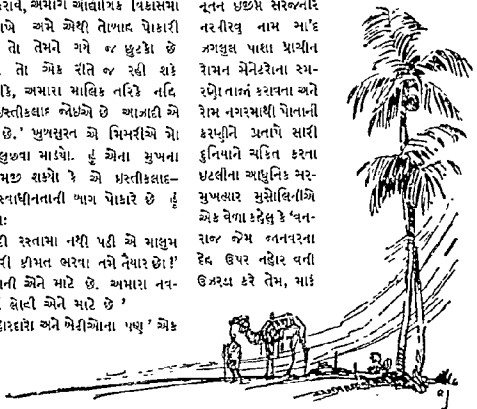 કરાવે, અમારા ઔદ્યોગિક વિકાસમાં
ખે અમે એથી તોબાહ પોકારી
તો તેમને ગયે જ છુટકો છે
તો એક રીતે જ રહી શકે
કે, અમારા માલિક તરિકે નહિ
ઇસ્તીકલાલ જોઇએ છે આઝાદી એ
છે.' ખુબસુરત એ મિસરીએ મો
લુછવા માંડયો. હું એના મુખના
મજી શક્યો કે એ ઇસ્તીકલાલ-
સ્વાધીનતાની બાંગ પોકારે છે હું
દી રસ્તામાં નથી પડી એ માલુમ
રી કીંમત ભરવા તમે તૈયાર છો!'
ની એને માટે છે. અમારા નવ-
લોહી એને માટે છે '
દારદારા અને બેડીઓના પણ ' એક
નૂતન ઇજીપ્ત સરજનાર
નરવીરનું નામ સા'દ
ઝગલુલ પાશા પ્રાચીન
રોમન સેનેટરોના સ્મ-
રણો તાજાં કરાવતા અને
રોમ નગરમાંથી પોતાની
કરણીને પ્રતાપે સારી
દુનિયાને ચકિત કરતા
ઇટલીના આધુનિક સર-
મુખત્યાર મુસોલિનીએ
એક વેળા કહેલું કે 'વન-
રાજ જેમ જાનવરના
દેહ ઉપર નહોર વતી
ઉઝરડા કરે તેમ, મારું